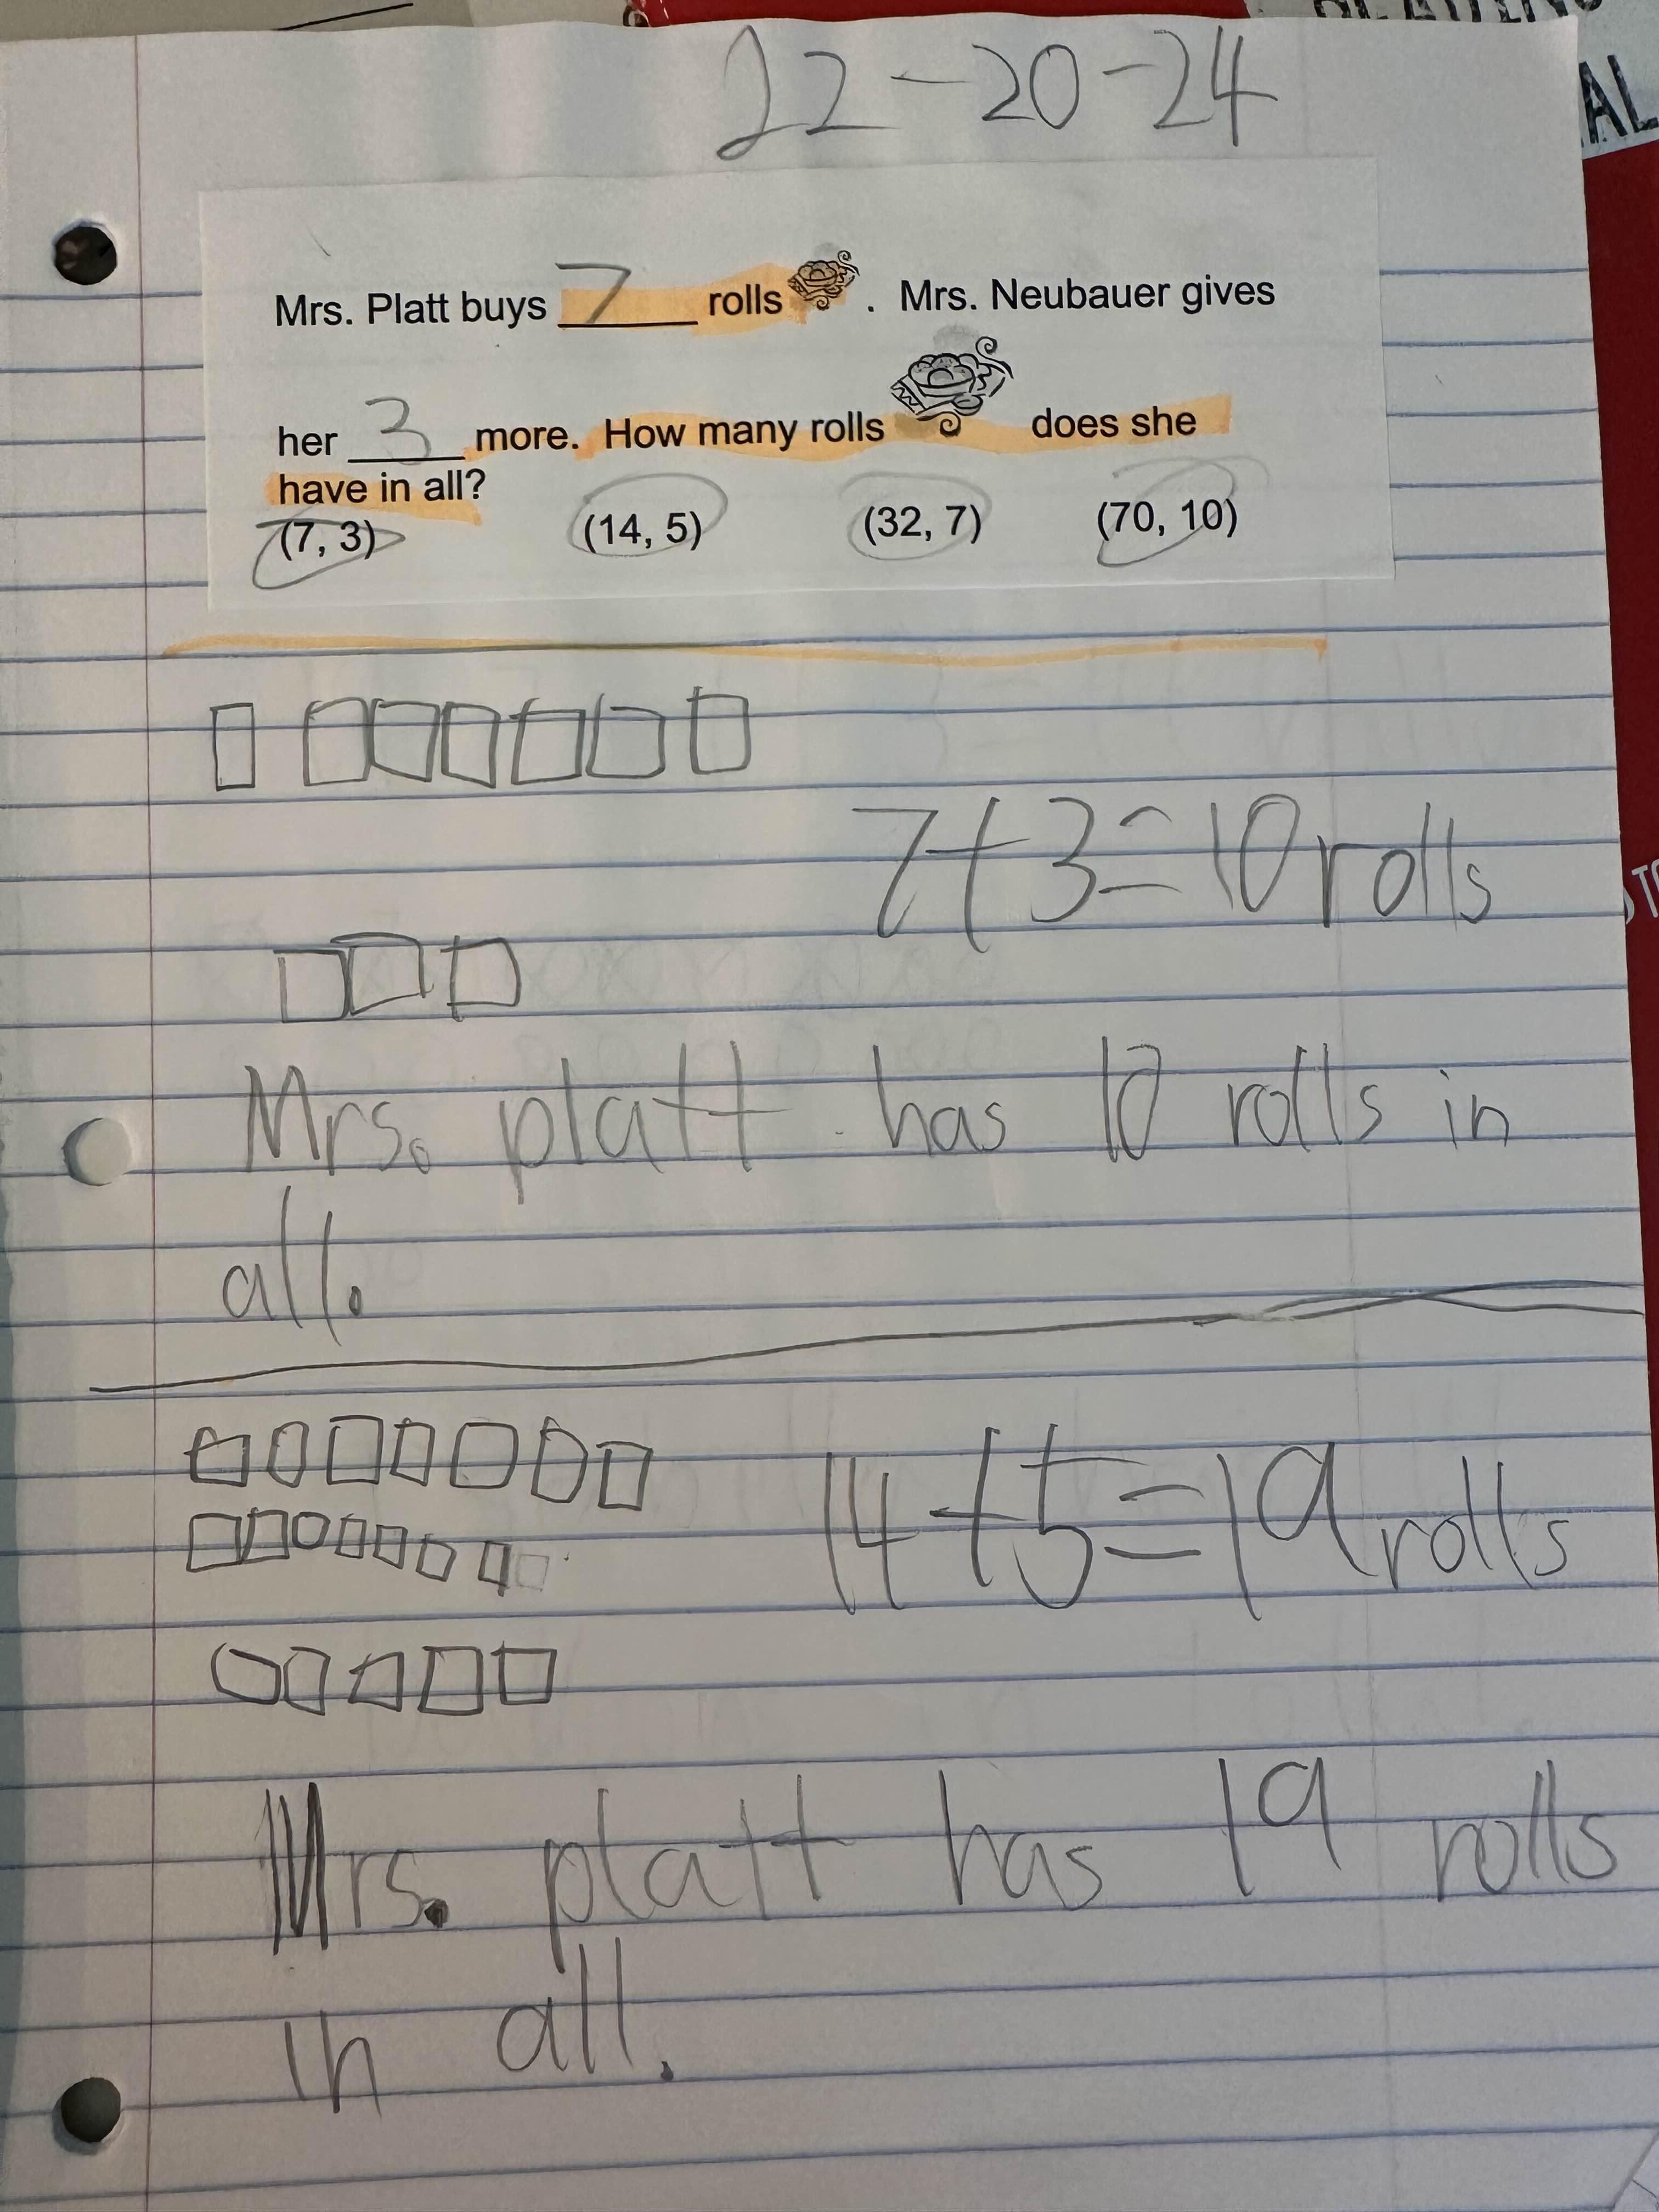 22-20-24
Mrs. Platt buys 7 rolls . Mrs. Neubauer gives
her 3 more. How many rolls does she
have in all?
(7, 3) (14, 5) (32, 7) (70, 10)
7+3=10 rolls
Mrs. platt has 10 rolls in
all.
14+5=19 rolls
Mrs. platt has 19 rolls
in all.